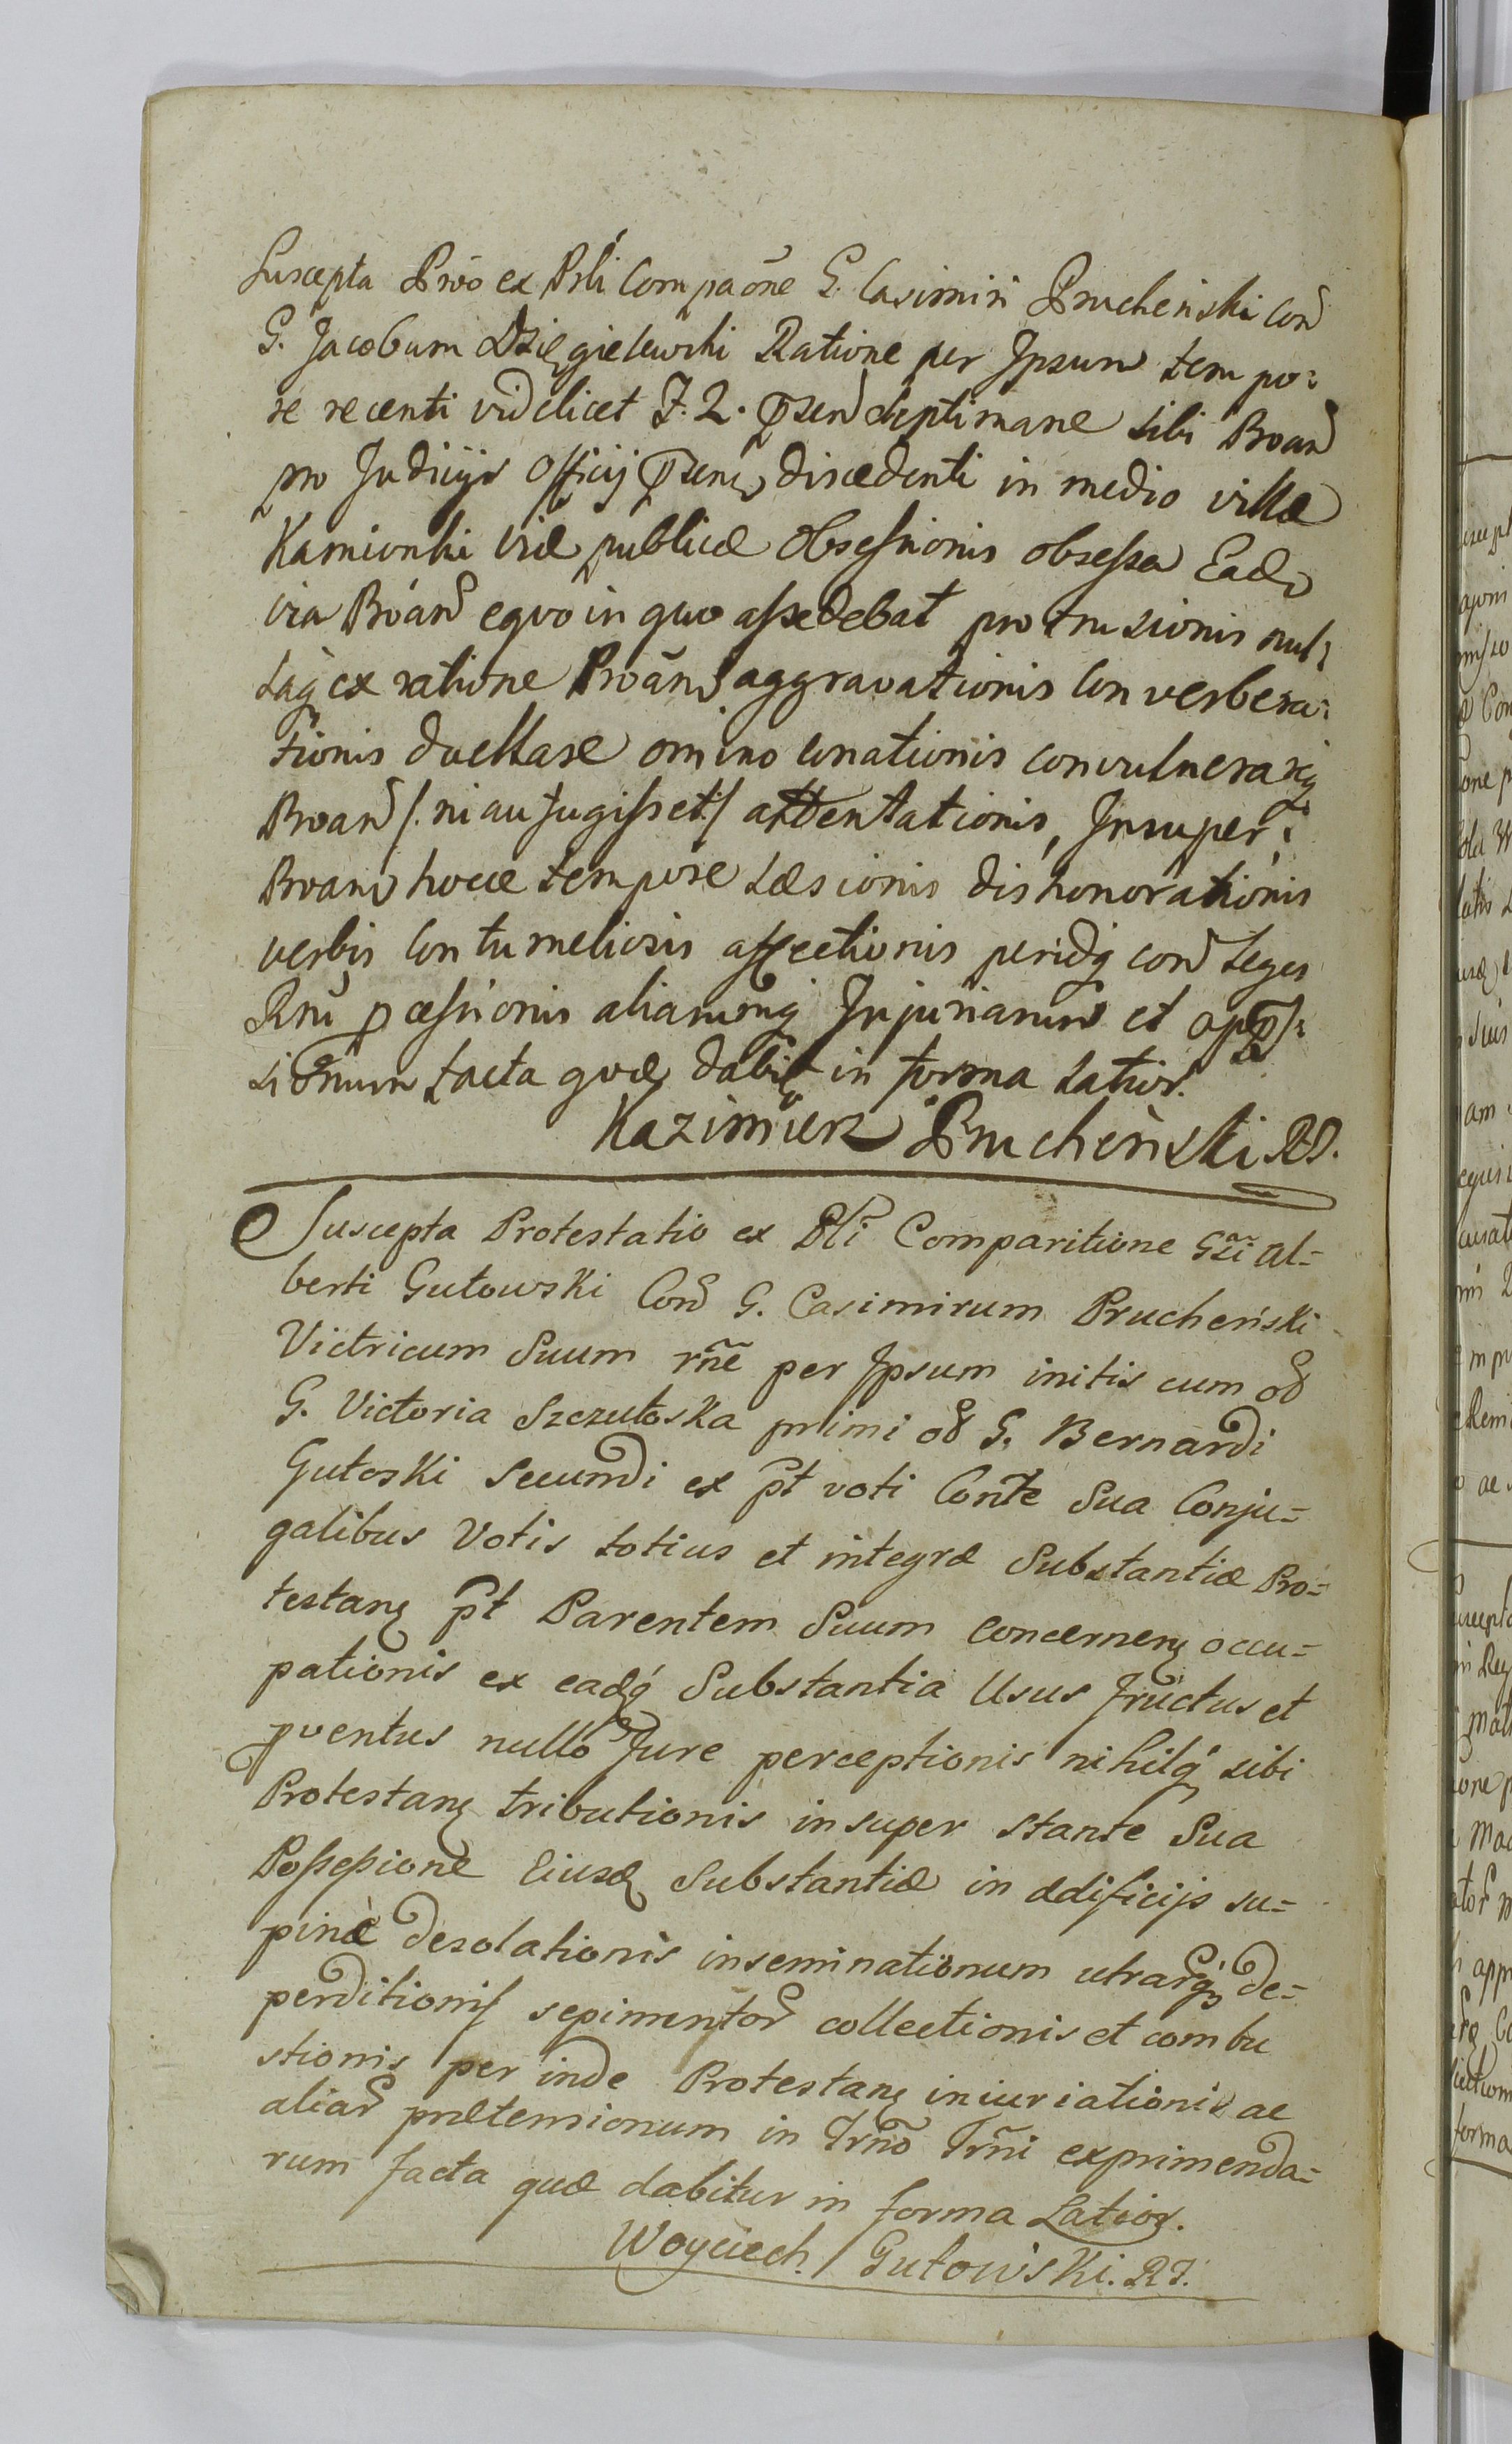 Suscepta Prõo ex Prli Compaõne G. Casimiri Prucheński Con
G. Jacobum Dzięgielewski Ratione per Ipsum tempo:
re recenti videlicet F. 2. Psen Septimanæ sibi Proan
pro Judicijs Officij Psenς discedenti in medio villæ
Kamionki viæ publicæ obseſsionis obseſsa Eadę
via Proan equo in quo aſsedebat protrusionis nul:
laq̃ ex ratione Proãnς aggravationis Converbera:
tionis duellare omino Conationis convulnerarιq
Proan /: ni aufugiſset :/ attentationis, Insuper
Proanς hocce tempore Læsionis dishonorationis
verbis Contumeliosis affectionis peridq con Leges
Rni pceſsionis aliarumq Injuriarum et opp̃ſ:
sionum facta quæ dabit in forma Latior.
Kazimierz Prucheński RP.
Suscepta Protestatio ex Pli Comparitione Gn̄i Al=
berti Gutowski Con G. Casimirum Prucheński
Victricum Suum rñe per Ipsum initis cum oð
G. Victoria Szczutoska primi oð G. Bernardi
Gutoski Secundi ex p̃t voti Conte Sua Conju=
galibus Votis totius et integræ Substantiæ Pro=
testanς p̃t Parentem Suum Concernenς occu=
pationis ex eadq Substantia Usus fructus et
pventus nullo Jure perceptionis nihilq sibi
Protestanς tributionis insuper stante Sua
Poſseſsione Eiusdς Substantiæ in ædificijs su=
pinè desolationis inseminationum utrarq̃ς de=
perditionis sepimentor collectionis et combu
stionis per inde Protestanς iniuriationis ac
aliar prætensionum in Trño Trñi exprimenda=
rum facta quæ dabitur in forma Latior.
Woyciech Gutowski. RP.